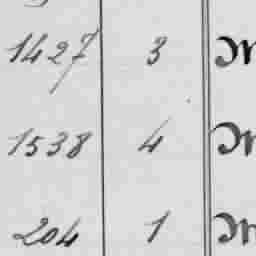 1427 3 M
1538 4 M
204 1 M